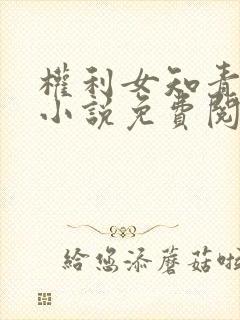 權利女知青
小說免費閱
給您添蘑菇啦